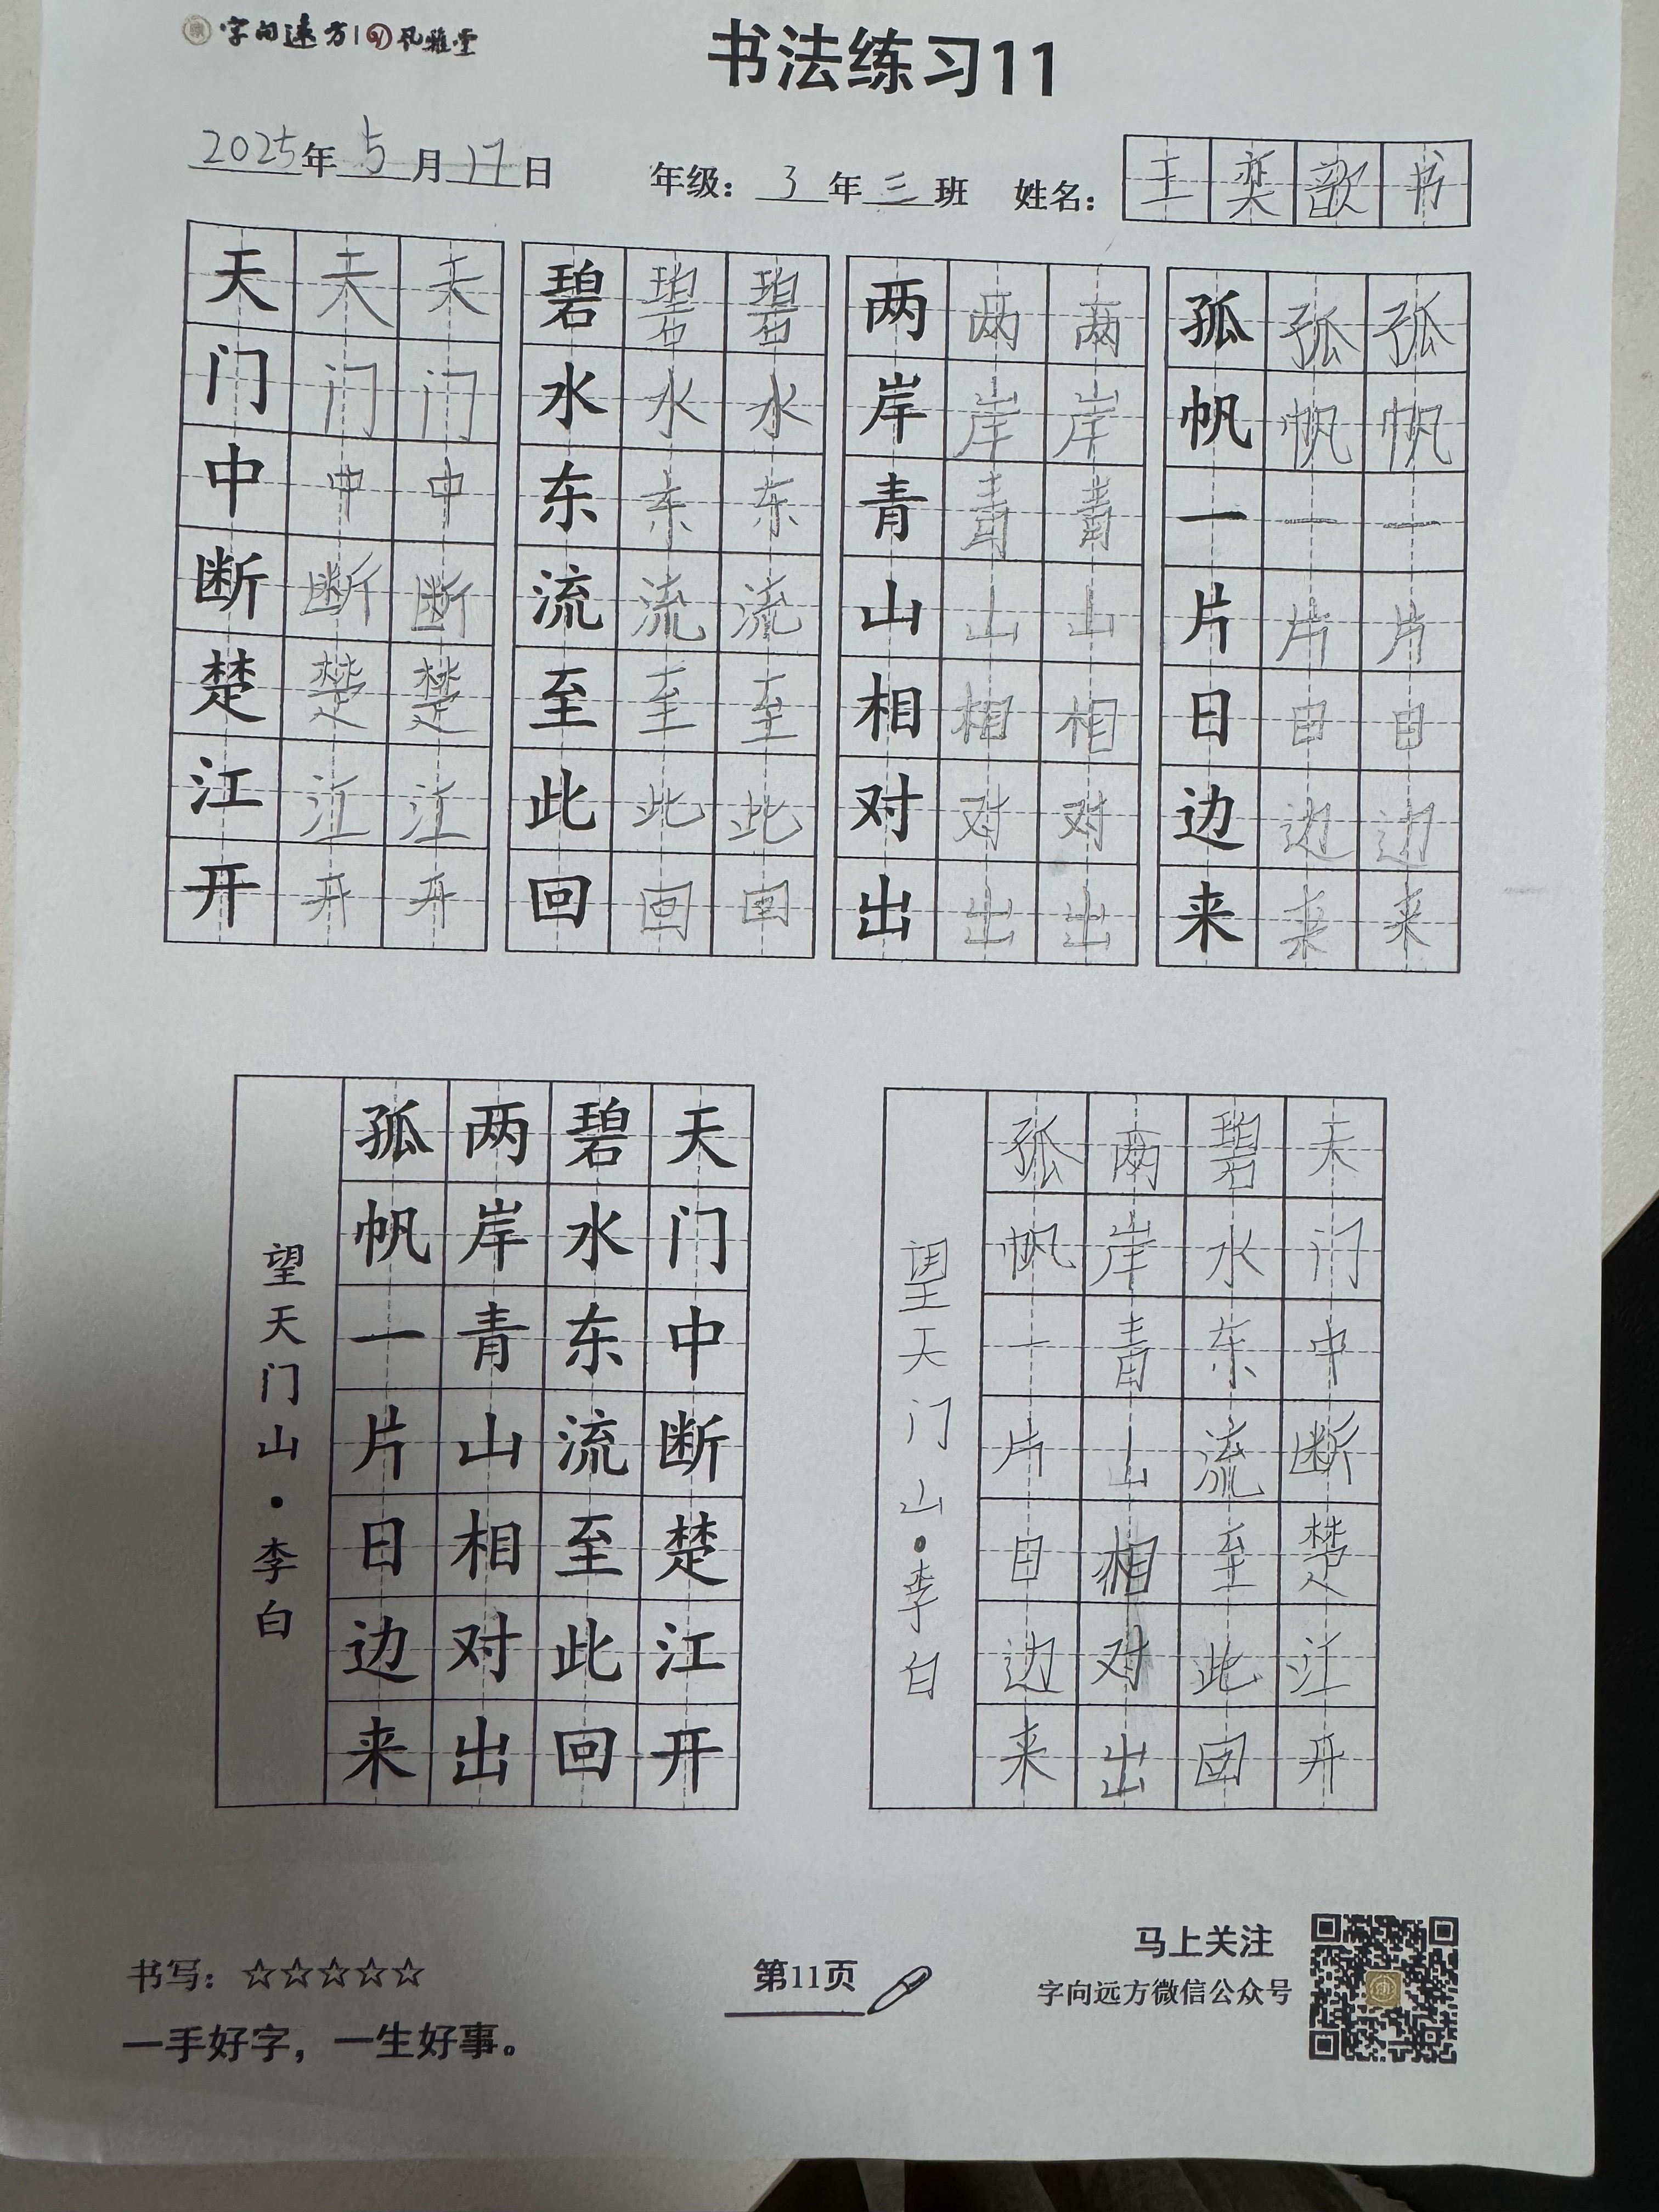 字向远方 风雅堂
书法练习11
2025年5月17日 年级：3年三班 姓名：王奕歆书
天天天 碧碧碧 两两两 孤孤孤
门门门 水水水 岸岸岸 帆帆帆
中中中 东东东 青青青 一一一
断断断 流流流 山山山 片片片
楚楚楚 至至至 相相相 日日日
江江江 此此此 对对对 边边边
开开开 回回回 出出出 来来来
天门中断楚江开
碧水东流至此回
两岸青山相对出
孤帆一片日边来
望天门山·李白
天门中断楚江开
碧水东流至此回
两岸青山相对出
孤帆一片日边来
望天门山·李白
书写：☆☆☆☆☆
一手好字，一生好事。
第11页
马上关注
字向远方微信公众号